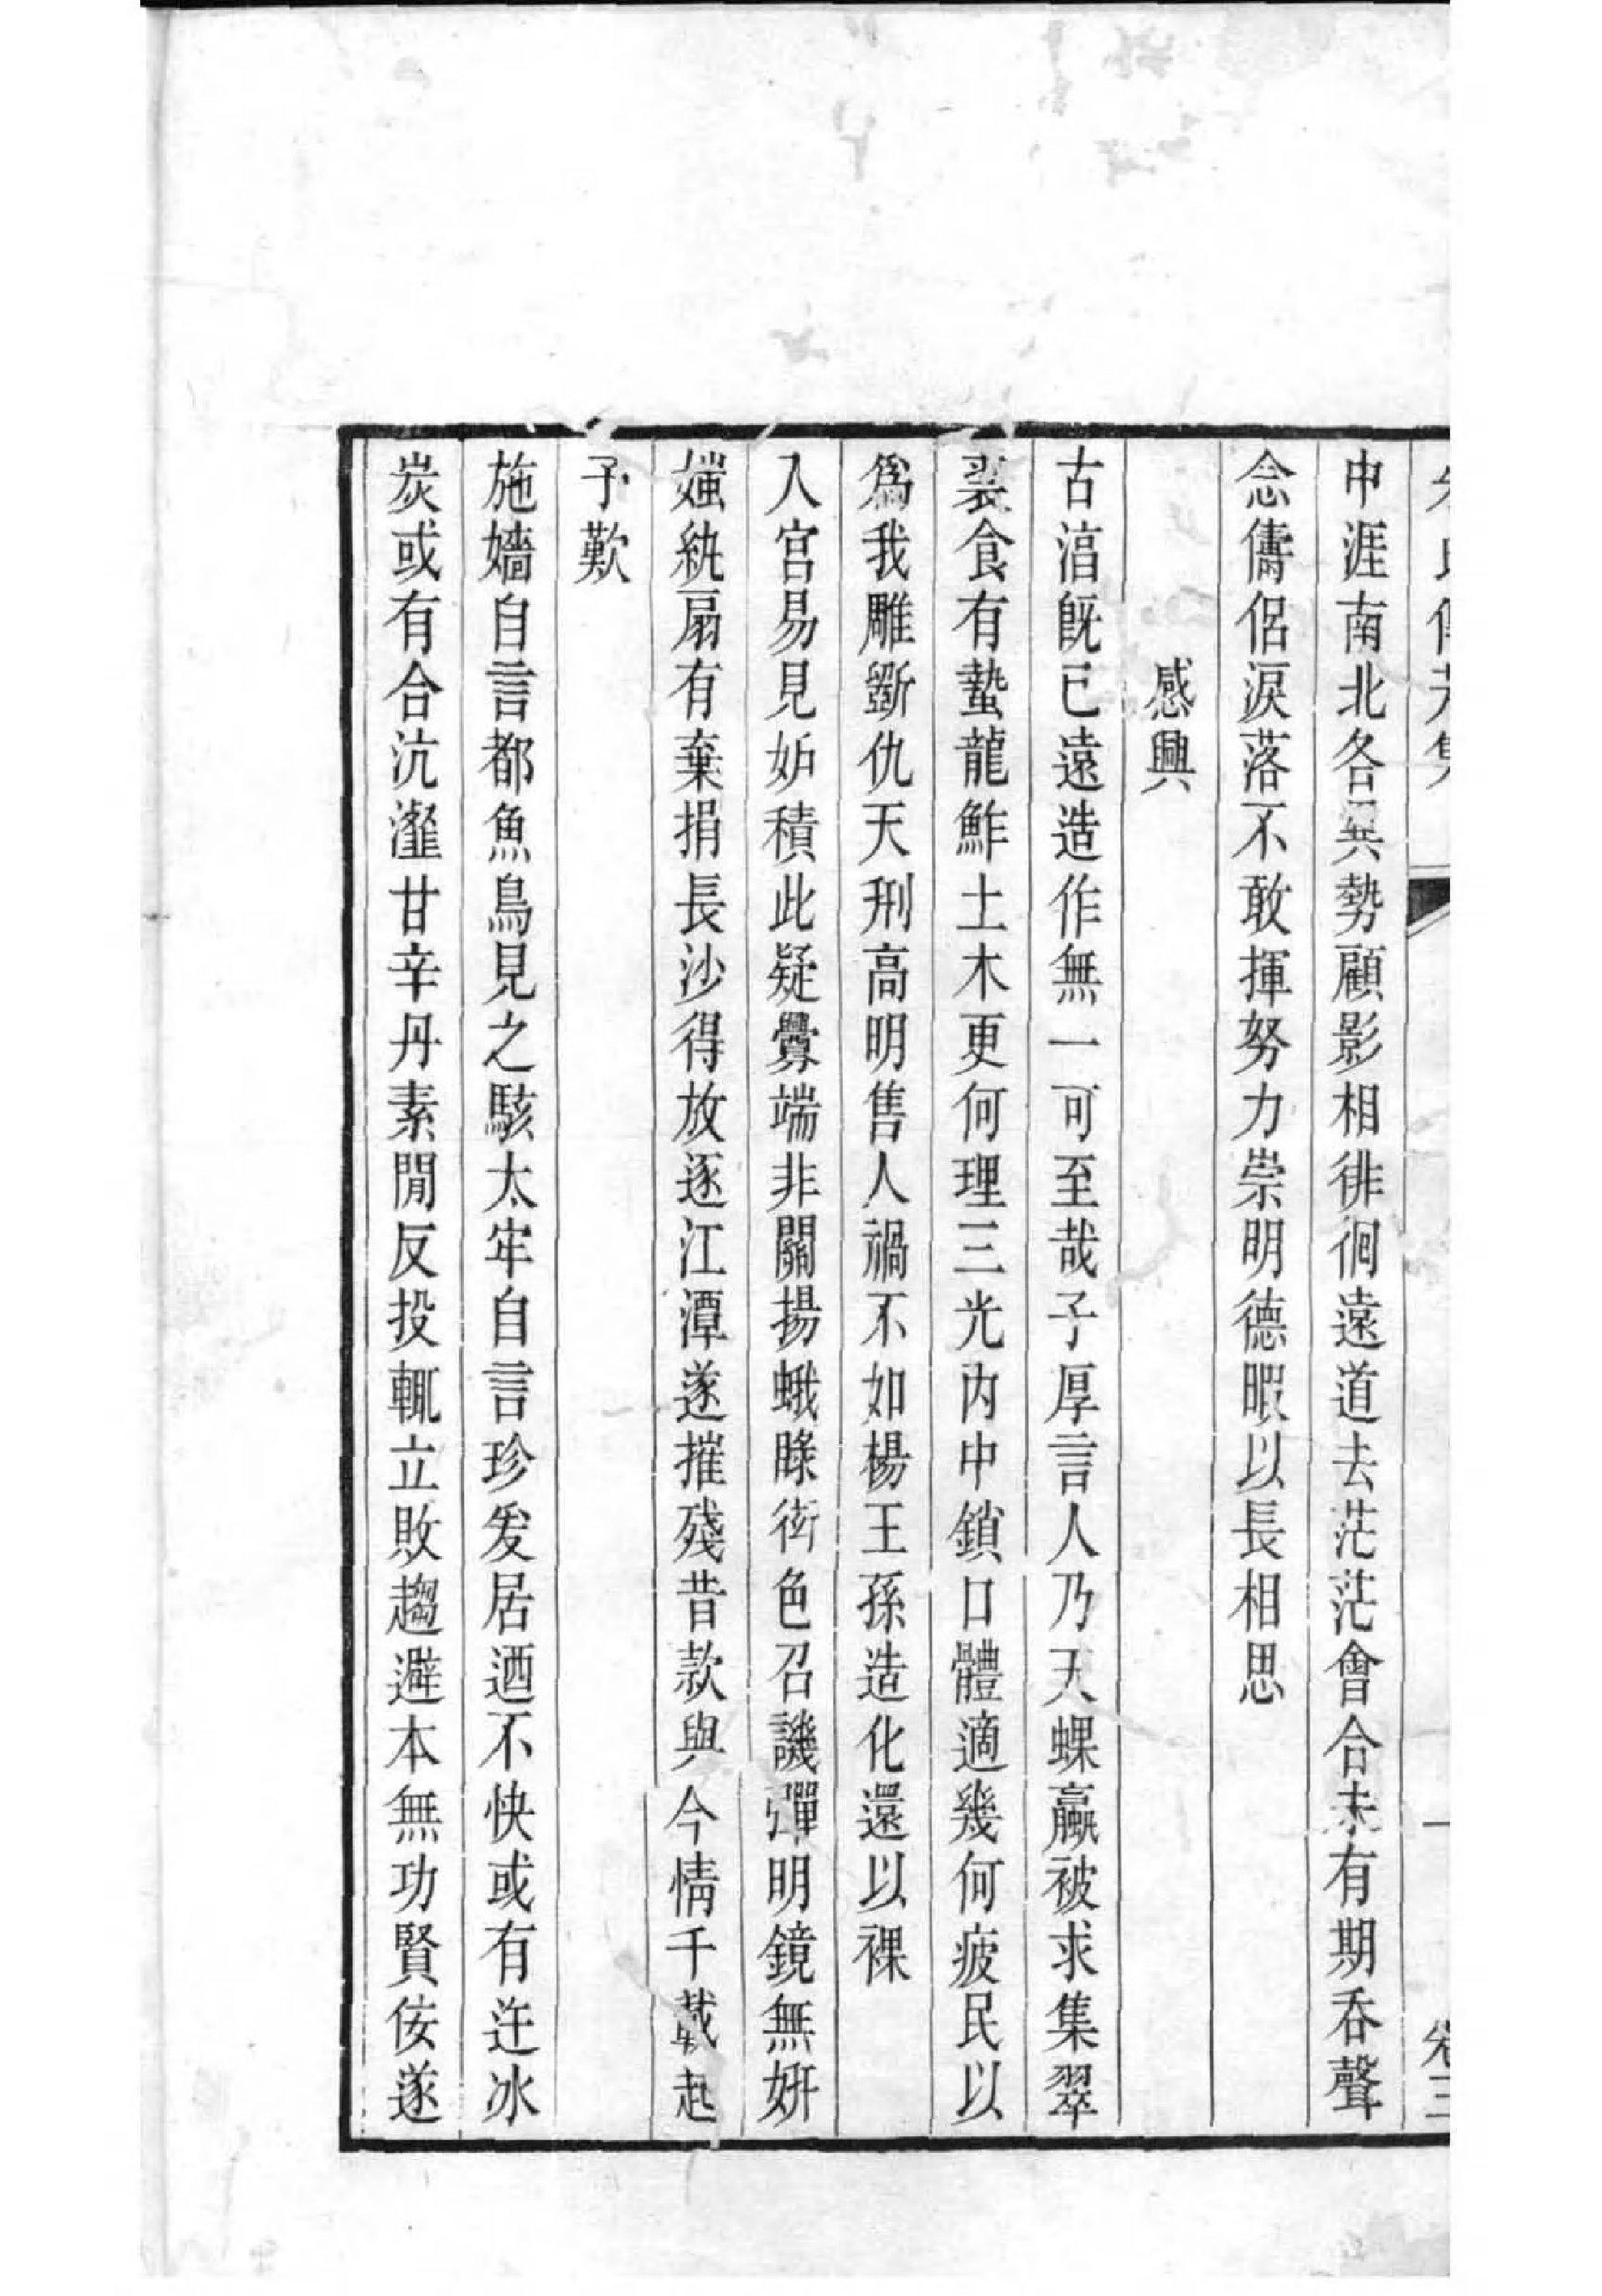 中涯南北各異勢顧影相徘徊遠道去茫茫會合未有期吞聲
念儔侶淚落不敢揮努力崇明德暇以長相思
感興
古湻旣已遠造作無一可至哉子厚言人乃天蜾蠃被求集翠
裘食有蟄龍鮓土木更何理三光內中鎖口體適幾何疲民以
爲我雕斵仇天刑高明售人禍不如楊王孫造化還以裸
入宮易見妒積此疑釁端非關揚蛾睩衒色召譏彈明鏡無妍
媸紈扇有棄捐長沙得放逐江潭遂摧殘昔款與今情千載起
予歎
施嬙自言都魚鳥見之駭太牢自言珍爰居迺不快或有迕冰
炭或有合沆瀣甘辛丹素閒反投輒立敗趨避本無功賢佞遂